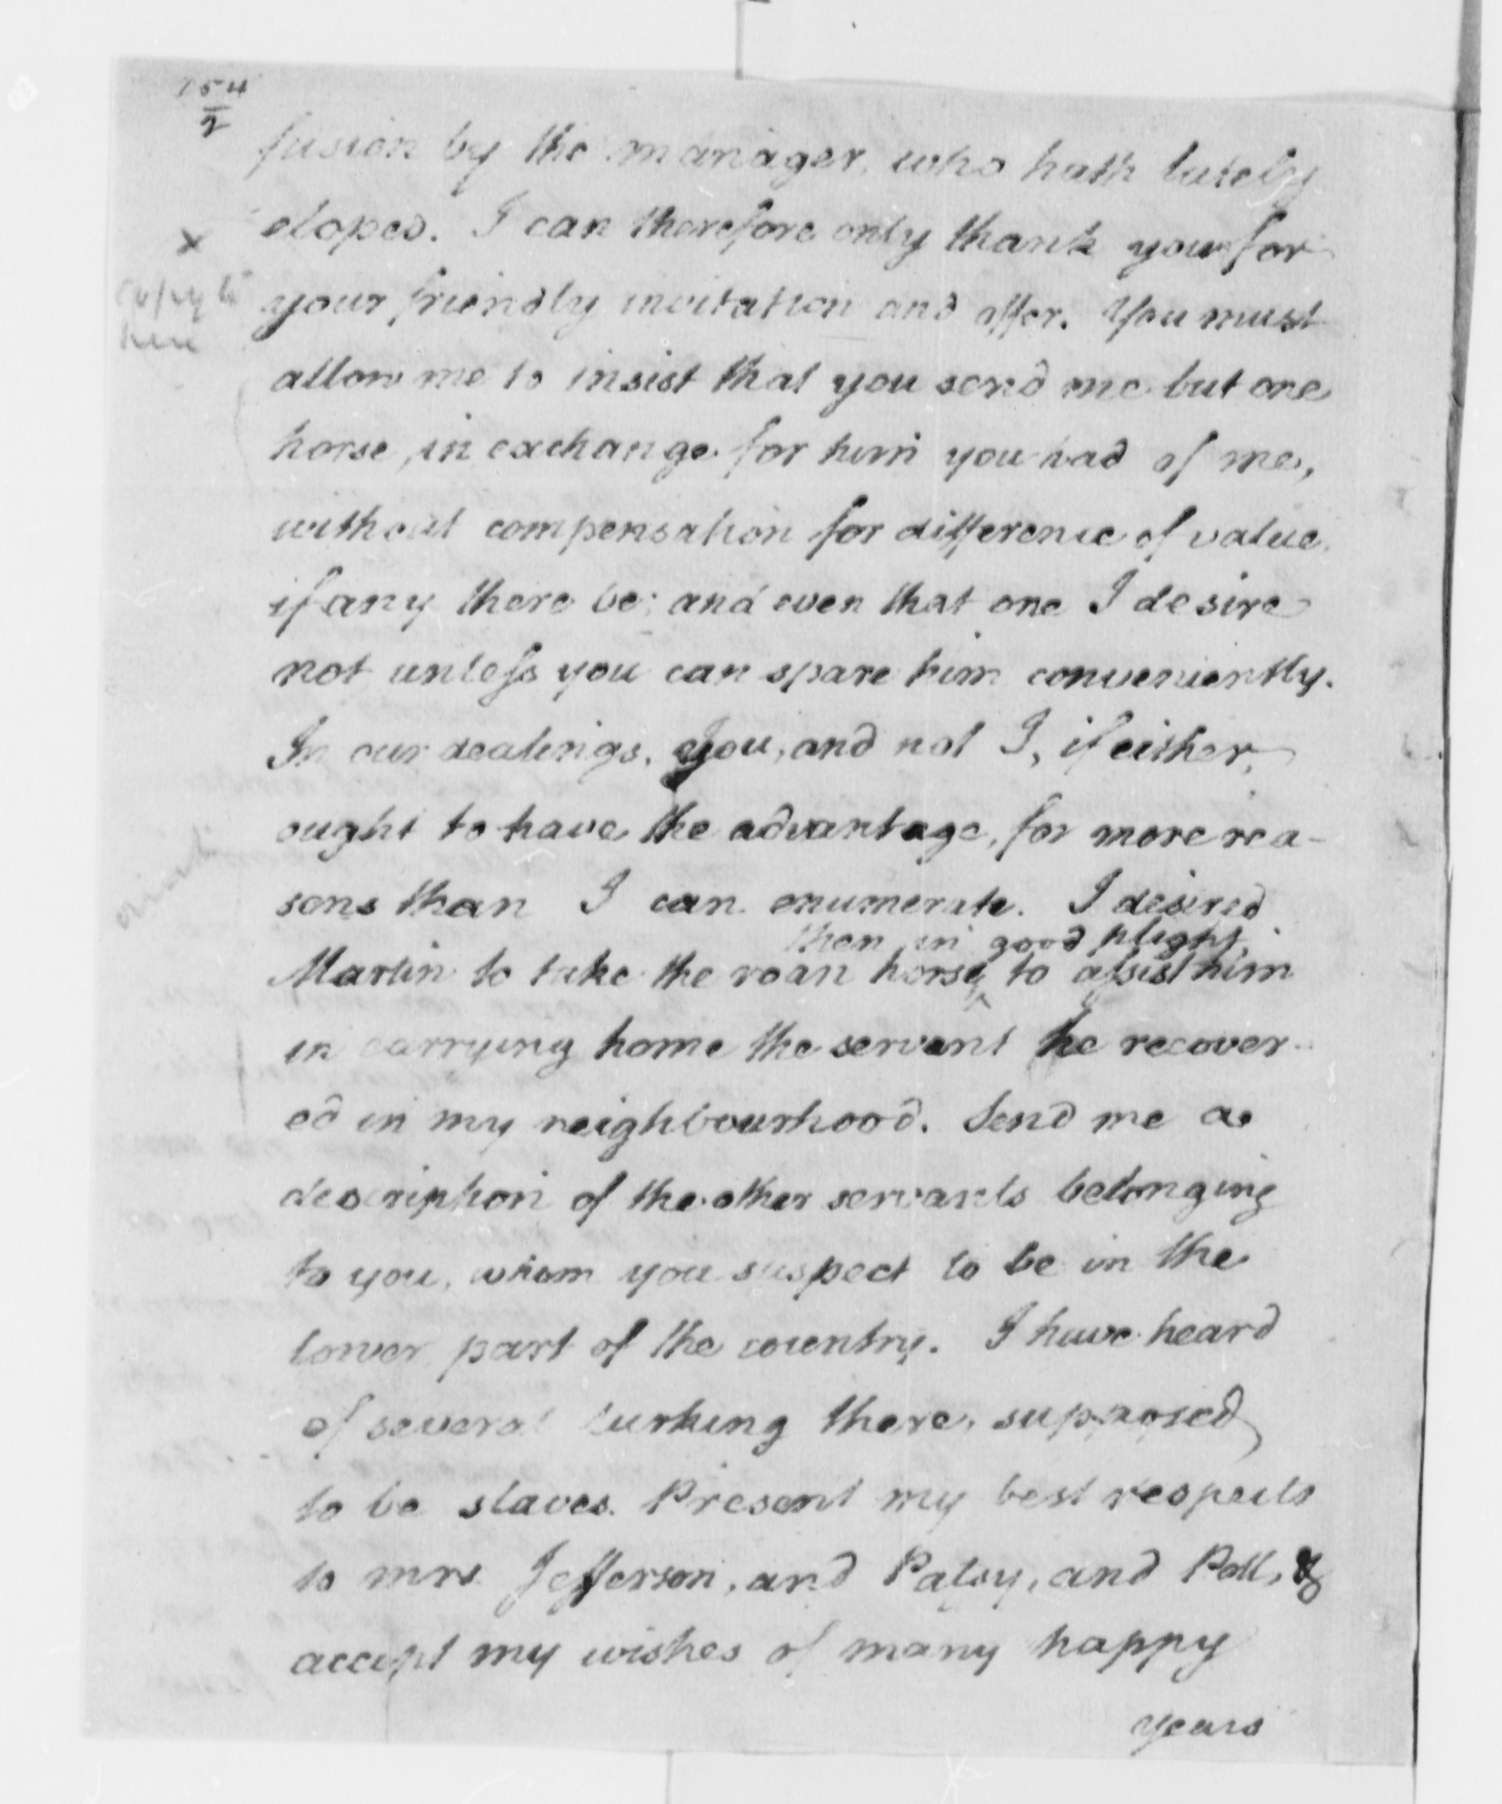 154
2
fusion by the manager, who hath lately
eloped. I can therefore only thank you for
x
copy to
here
your friendly invitation and offer. You must
allow me to insist that you send me but one
horse, in exchange for him you had of me,
without compensation for difference of value,
if any there be; and even that one I desire
not unless you can spare him conveniently.
In our dealings, you, and not I, if either,
ought to have the advantage, for more rea-
sons than I can enumerate. I desired
then in good plight,
Martin to take the roan horse^ to assist him
in carrying home the servant he recover-
ed in my neighbourhood. Send me a
description of the other servants belonging
to you, whom you suspect to be in the
lower part of the country. I have heard
of several lurking there, supposed
to be slaves. Present my best respects
to mrs Jefferson, and Patsy, and Poll, &
accept my wishes of many happy
years